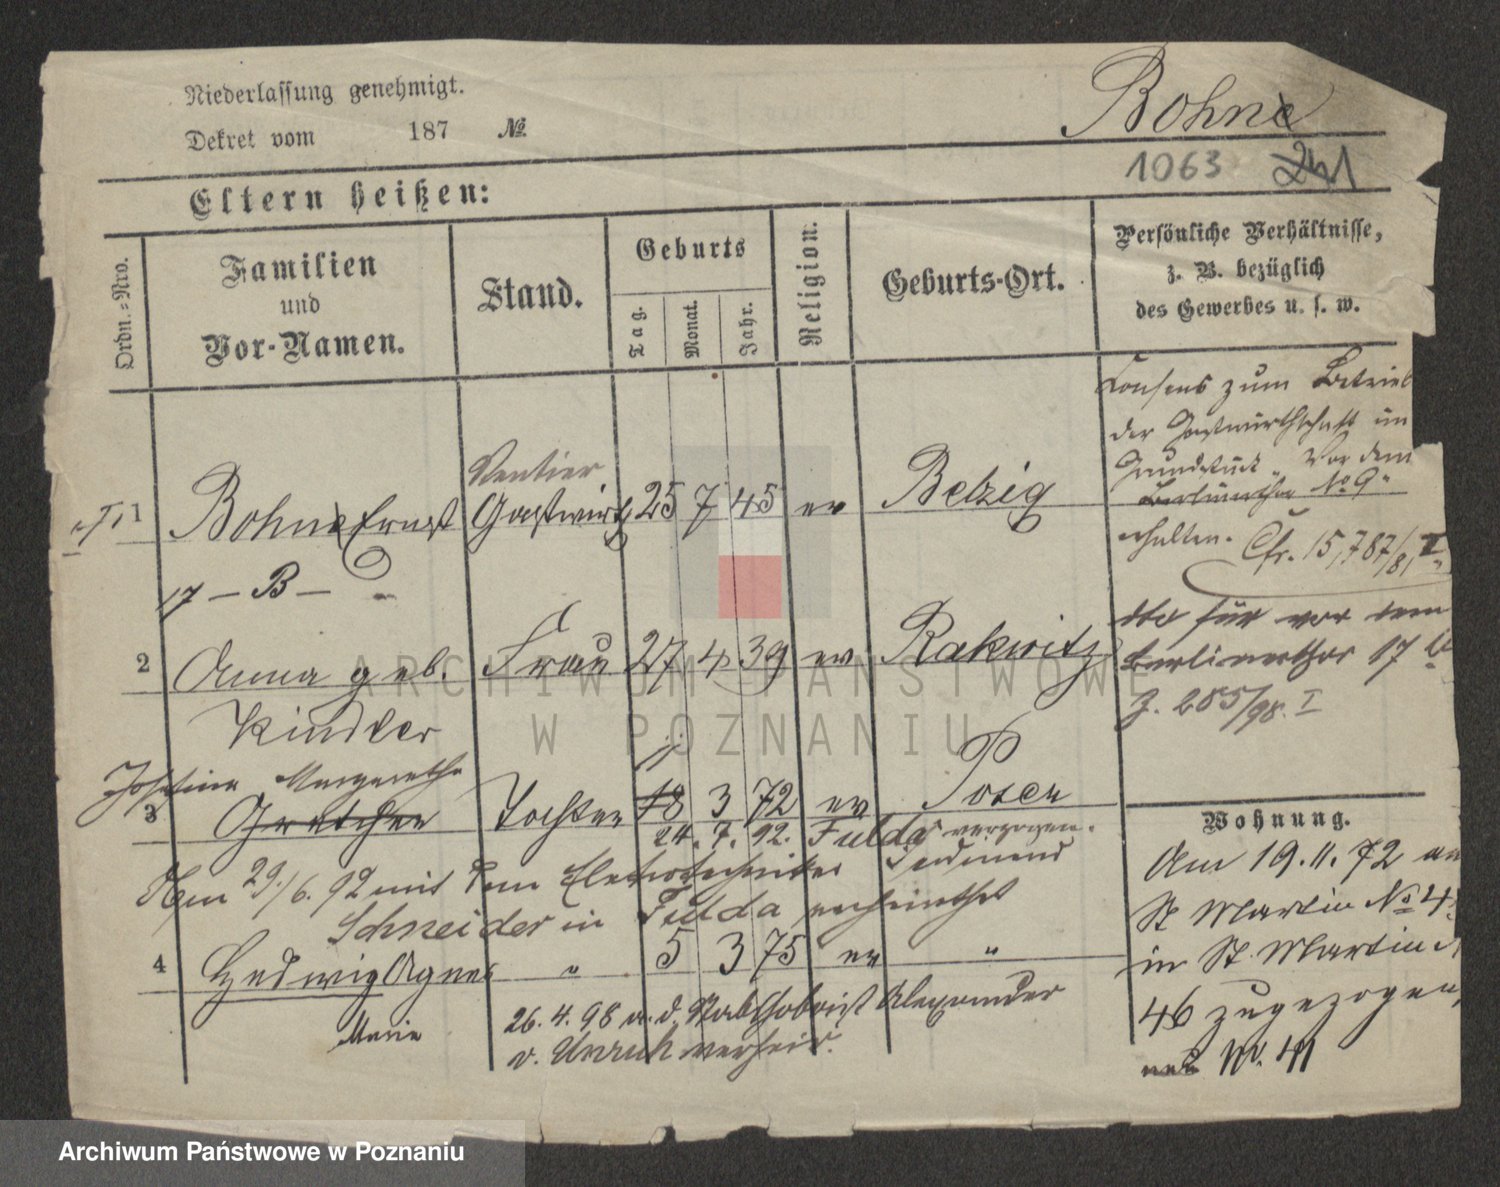 Niederlassung genehmigt.
Dekret vom 187 №
Bohne
1063 241
Eltern heißen:
Ordn.-Nro.
Familien
und
Vor-Namen.
Stand.
Geburts
Tag.
Monat.
Jahr.
Religion.
Geburts-Ort.
Persönliche Verhältnisse,
z. B. bezüglich
des Gewerbes u. s. w.
Consens zum Betrieb
der Gastwirthschaft im
Grundstück "Vor dem
Berlinerthor № 9"
erhalten. Cfr. 15,787/81 I
Rentier
1 Bohne Ernst Gastwirth 25 7 45 ev Belzig
17 – B –
dto für vor dem
Berlinerthor 17
J. 285/98. I
2 Anna geb. Frau 27 4 39 ev Rakwitz
Kindler
Josefine Margarethe
3 Gretchen Tochter 18 3 72 ev Posen
24. 7. 92. Fulda verzogen.
Am 29./6. 92 mit dem Elektrotechniker
Schneider in Fulda verheirathet
4 Hedwig Agnes " 5 3 75 ev "
Marie
26. 4. 98 a. d. Alexander
v. Unruh verheir.
Wohnung.
Am 19. 11. 72 an
St Martin № 4
in St. Martin
46 zugezogen,
№. 41
ARCHIWUM PAŃSTWOWE
W POZNANIU
Archiwum Państwowe w Poznaniu